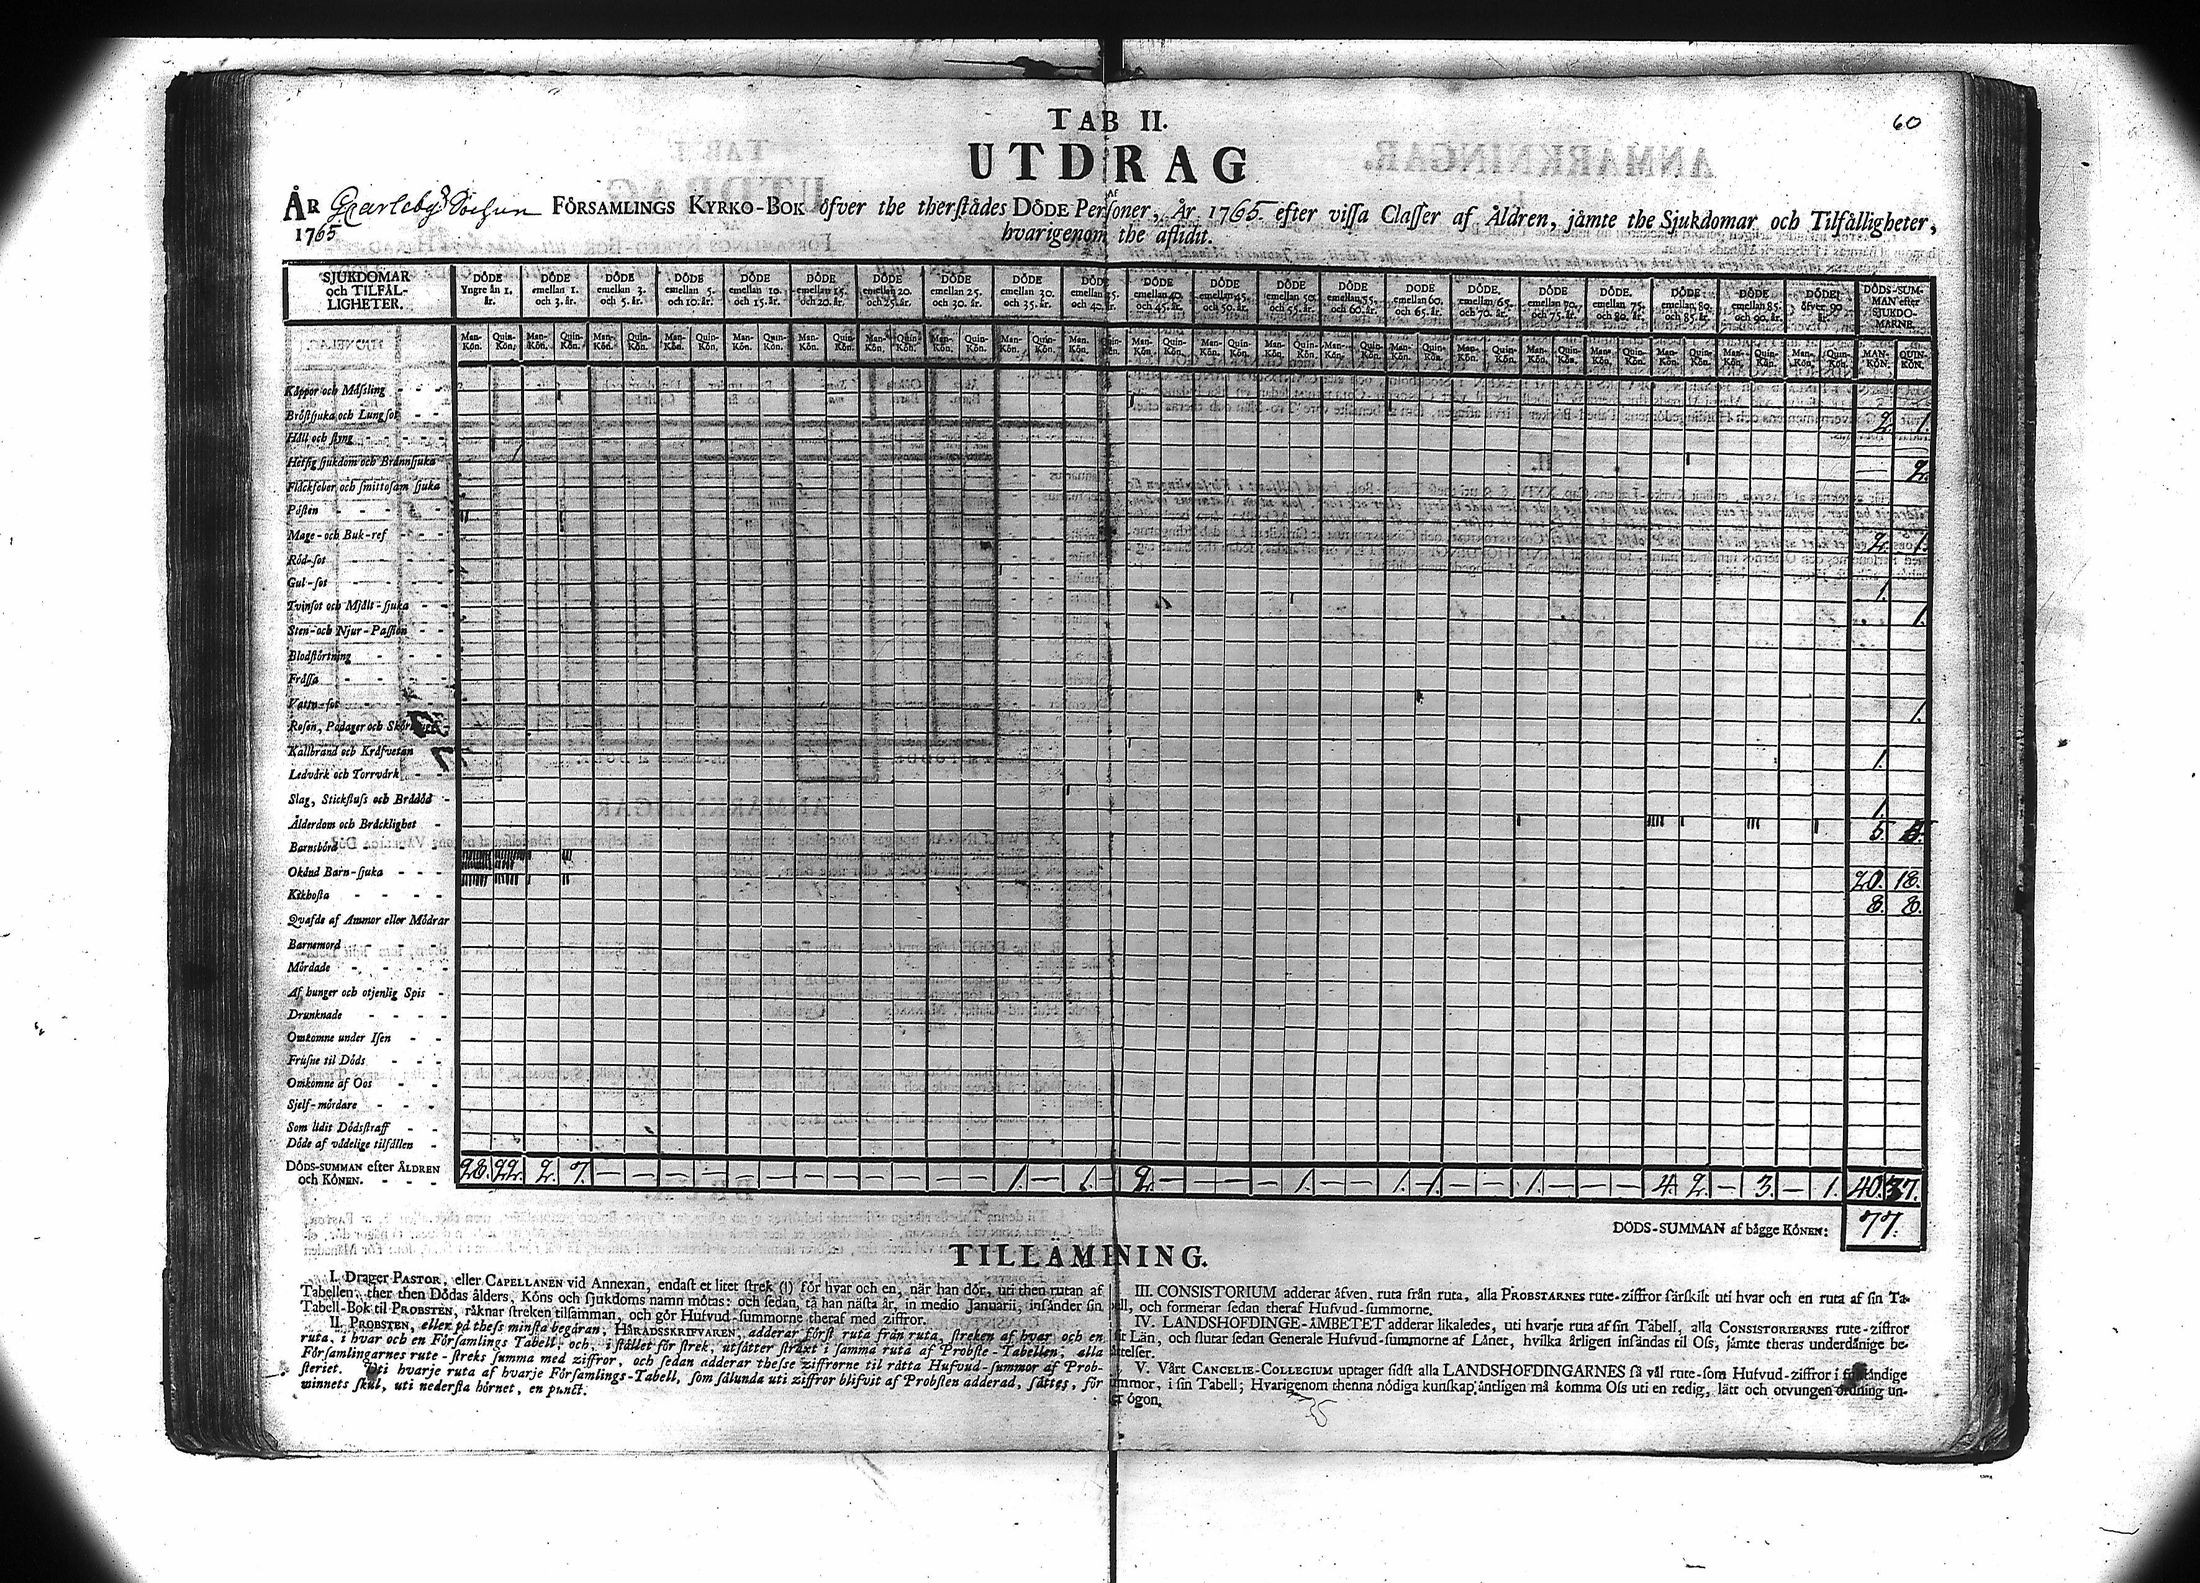 60
TAB II.
UTDRAG
Af
ÅR Socken FÖRSAMLINGS KYRKO-BOK öfver the therstädes DÖDE Personer, År 1765 efter vissa Classer af Åldren, jämte the Sjukdomar och Tilfälligheter,
1765. hvarigenom the aflidit.
SJUKDOMAR och TILFÄL-LIGHETER.
DÖDE Yngre än 1. år. DÖDE emellan 1. och 3. år. DÖDE emellan 3. och 5. år. DÖDE emellan 5. och 10. år. DÖDE emellan 10. och 15. år. DÖDE emellan 15. och 20. år. DÖDE emellan 20. och 25. år. DÖDE emellan 25. och 30. år. DÖDE emellan 30. och 35. år. DÖDE emellan 35. och 40. år. DÖDE emellan 40. och 45. år. DÖDE emellan 45. och 50. år. DÖDE emellan 50. och 55. år. DÖDE emellan 55. och 60. år. DÖDE emellan 60. och 65. år. DÖDE emellan 65. och 70. år. DÖDE emellan 70. och 75. år. DÖDE emellan 75. och 80. år. DÖDE emellan 80. och 85. år. DÖDE emellan 85. och 90. år. DÖDE öfver 90. år. DÖDS-SUM-MAN efter SJUKDO-MARNE.
Man-Kön. Quin-Kön. Man-Kön. Quin-Kön. Man-Kön. Quin-Kön. Man-Kön. Quin-Kön. Man-Kön. Quin-Kön. Man-Kön. Quin-Kön. Man-Kön. Quin-Kön. Man-Kön. Quin-Kön. Man-Kön. Quin-Kön. Man-Kön. Quin-Kön. Man-Kön. Quin-Kön. Man-Kön. Quin-Kön. Man-Kön. Quin-Kön. Man-Kön. Quin-Kön. Man-Kön. Quin-Kön. Man-Kön. Quin-Kön. Man-Kön. Quin-Kön. Man-Kön. Quin-Kön. Man-Kön. Quin-Kön. Man-Kön. Quin-Kön. Man-Kön. Quin-Kön. MAN-KÖN. QUIN-KÖN.
Koppor och Mässling - - -
Bröstsjuka och Lungsot - - 2. 1.
Håll och styng - - - - -
Hetsig sjukdom och Brännsjuka 2.
Fläckfeber och smittosam sjuka
Pästen - - - - - -
Mage- och Buk-ref - - - 2. 1.
Röd-sot - - - - -
Gul-sot - - - - - 1.
Tvinsot och Mjält-sjuka - - 1.
Sten- och Njur-Passion - -
Blodstörtning - - - -
Frässa - - - - - -
Vattu-sot - - - - - 1.
Rosen, Podager och
Kallbrand och Kräfvetan 1.
Ledvärk och Torrvärk - -
Slag, Stickfluss och Brådöd - 1.
Ålderdom och Bräcklighet - 5. 5.
Barnsbörd
Okänd Barn-sjuka - - - 20. 18.
Kikhosta - - - - 8. 8.
Qvafde af Ammor eller Mödrar
Barnemord - - - -
Mördade - - - - -
Af hunger och otjenlig Spis -
Drunknade - - - -
Omkomne under Isen - -
Frusne til Döds - - -
Omkomne af Oos - -
Sjelf-mördare - - -
Som lidit Dödsstraff - -
Döde af vådelige tilfällen -
DÖDS-SUMMAN efter ÅLDREN och KÖNEN. - - - 28. 22. 2. 7. — — — — — — — — — — — — 1. — 1. — 2. — — — — 1. — — 1. 1. — — 1. — — — 4. 2. — 3. — 1. 40. 37.
DÖDS-SUMMAN af bägge KÖNEN: 77.
TILLÄMNING.
I. Drager PASTOR, eller CAPELLANEN vid Annexan, endast et litet strek (I) för hvar och en, när han dör, uti then rutan af
Tabellen, ther then Dödas ålders, Köns och sjukdoms namn mötas: och sedan, tå han nästa år, in medio Januarii, insänder sin
Tabell-Bok til PROBSTEN, räknar streken tilsamman, och gör Hufvud-summorne theraf med ziffror.
II. PROBSTEN, eller på thess minsta begäran, HÄRADSSKRIFVAREN, adderar först ruta från ruta, streken af hvar och en
ruta, i hvar och en Församlings Tabell, och, i stället för strek, utsätter straxt i samma ruta af Probste-Tabellen, alla
Församlingarnes rute-streks summa med ziffror, och sedan adderar thesse ziffrorne til rätta Hufvud-summor af Prob-
steriet. Uti hvarje ruta af hvarje Församlings-Tabell, som sålunda uti ziffror blifvit af Probsten adderad, sättes, för
winnets skul, uti nedersta hörnet, en punct.
III. CONSISTORIUM adderar äfven, ruta från ruta, alla PROBSTARNES rute-ziffror särskilt uti hvar och en ruta af sin Ta-
bell, och formerar sedan theraf Hufvud-summorne.
IV. LANDSHÖFDINGE-ÄMBETET adderar likaledes, uti hvarje ruta af sin Tabell, alla CONSISTORIERNES rute-ziffror
sit Län, och slutar sedan Generale Hufvud-summorne af Länet, hvilka årligen insändas til Oss, jämte theras underdånige be-
rättelser.
V. Vårt CANCELIE-COLLEGIUM uptager sidst alla LANDSHÖFDINGARNES så väl rute-som Hufvud-ziffror i
summor, i sin Tabell; Hvarigenom thenna nödiga kunskap äntligen må komma Oss uti en redig, lätt och otvungen ordning un-
der ögon.